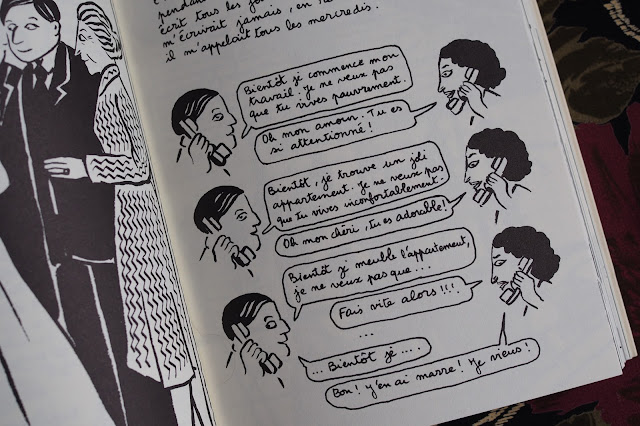 pendan
écrit tous les jo
m'écrivait jamais, en
il m'appelait tous les mercredis.
Bientôt je commence mon
travail. Je ne veux pas
que tu vives pauvrement.
Oh mon amour. Tu es
si attentionné !
Bientôt, je trouve un joli
appartement. Je ne veux pas
que tu vives inconfortablement.
Oh mon chéri, tu es adorable !
Bientôt je meuble l'appartement,
je ne veux pas que ...
Fais vite alors !!!
...
... Bientôt je ... .
Bon ! y'en ai marre ! Je viens !